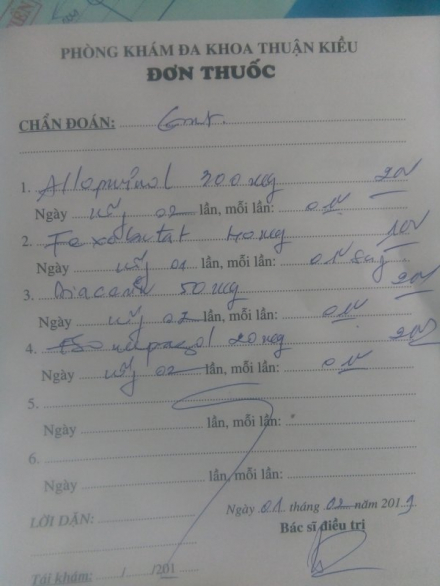 PHÒNG KHÁM ĐA KHOA THUẬN KIỀU
ĐƠN THUỐC
CHẨN ĐOÁN: Gout.
1. Allopurinol 300 mg 20V
Ngày uống 02 lần, mỗi lần: 01V
2. Fexobutat 40mg 10V
Ngày uống 01 lần, mỗi lần: 01V sáng
3. Diacerin 50mg 20V
Ngày uống 02 lần, mỗi lần: 01V
4. Esomeprazol 20mg 20V
Ngày uống 02 lần, mỗi lần: 01V
5.
Ngày lần, mỗi lần:
6.
Ngày lần, mỗi lần:
LỜI DẶN:
Ngày 01 tháng 02 năm 2019
Bác sĩ điều trị
Tái khám: / /201